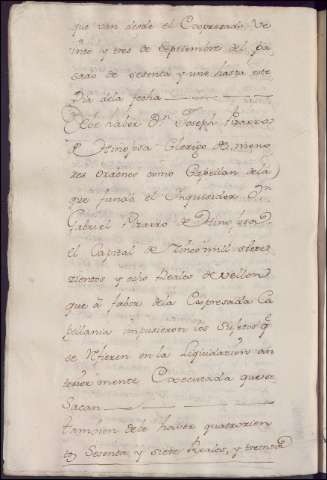 que van desde el Expresado, Ve
inte y tres de Septiembre del pa
sado de sesenta y uno hasta este
Dia dela fecha
Debe haber Dn Joseph Pizarro
e Hinojosa Clerigo de meno
res ordenes como Capellan dela
que fundó el Inquisidor Dn
Gabriel Pizarro de Hinojosa
el Capital de mil siete
zientos y ocho Reales de vellon
que á fabor dela Expresada Ca
pellania impusieron los Sujetos q
se rfieren en la Liquidazion an
terior mente Executada que se
Sacan
tambien debe haber quatrozien
tos Sesenta, y siete Reales, y treinta